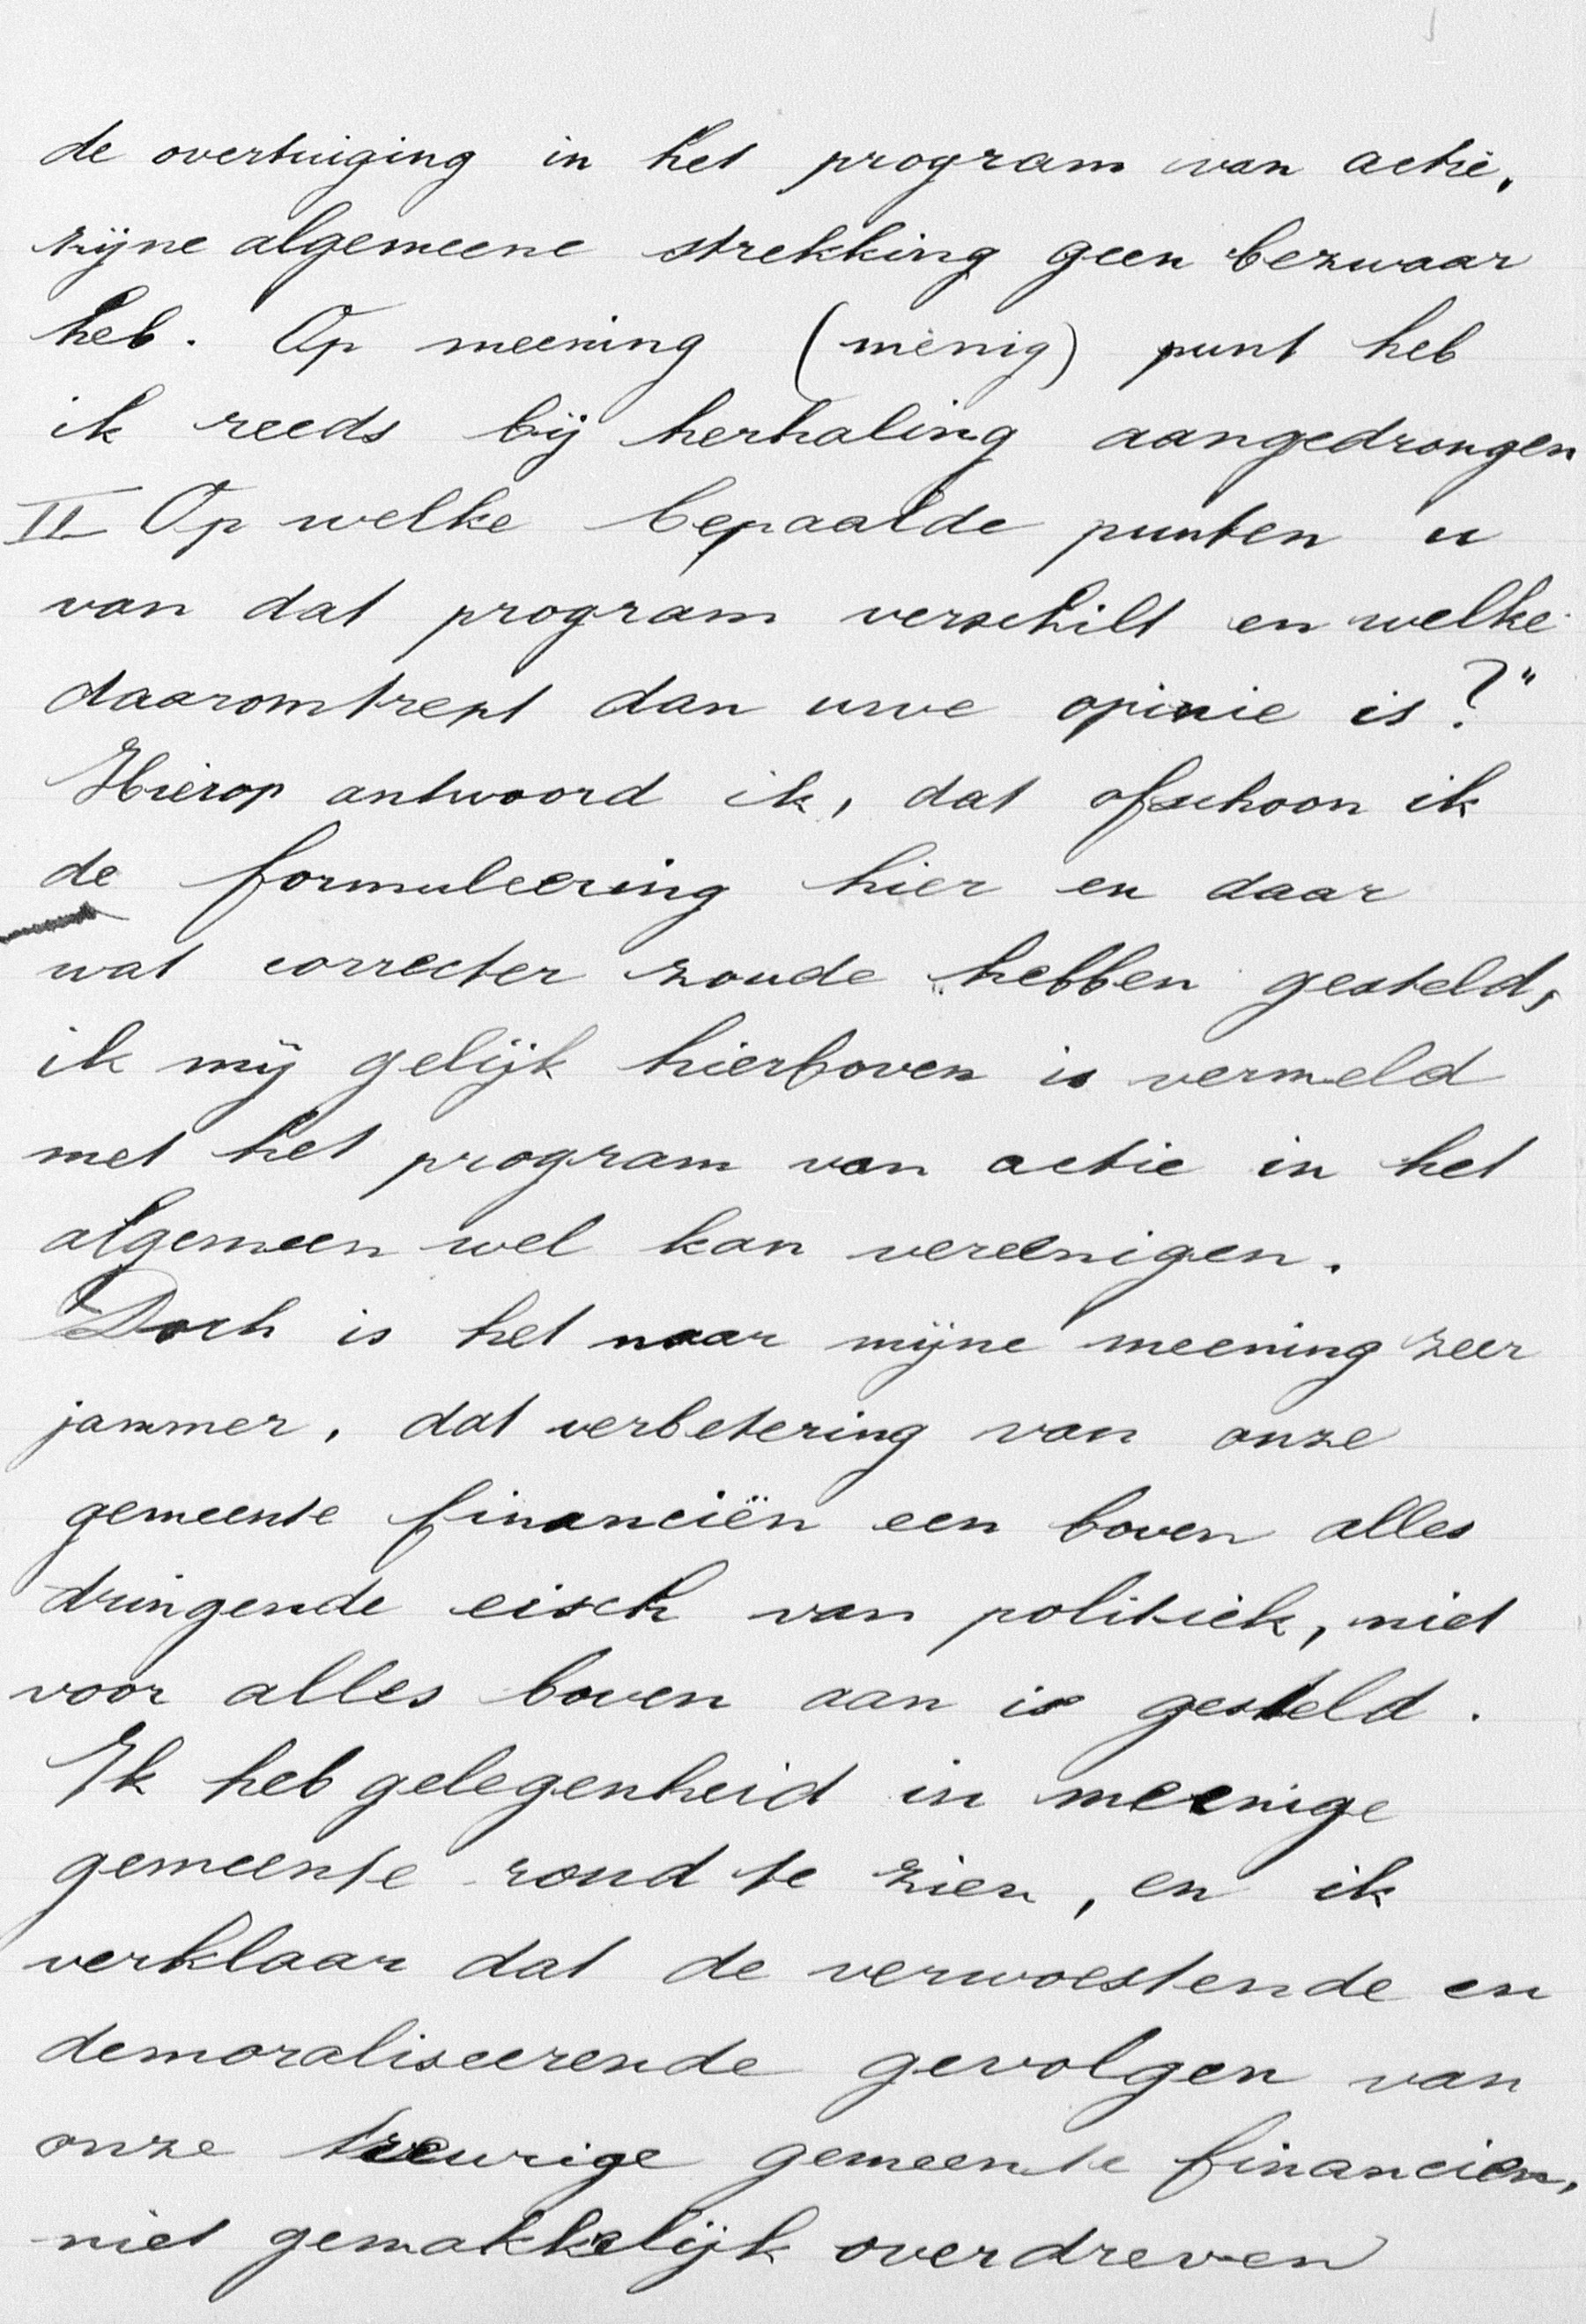 de overtuiging in het program van actie,
zijne algemeene strekking geen bezwaar
heb. Op meening (menig) punt heb
ik reeds bij herhaling aangedrongen
II Op welke bepaalde punten u
van dat program verschilt en welke
daaromtrent dan uwe opinie is?"
Hierop antwoord ik, dat ofschoon ik
de formuleering hier en daar
wat correcter zoude hebben gesteld,
ik mij gelijk hierboven is vermeld
met het program van actie in het
algemeen wel kan vereenigen.
Doch is het naar mijne meening zeer
jammer, dat verbetering van onze
gemeente financiën een boven alles
dringende eisch van politiek, niet
voor alles boven aan is gesteld.
Ik heb gelegenheid in meenige
gemeente rond te zien, en ik
verklaar dat de verwoestende en
demoraliseerende gevolgen van
onze treurige gemeente financien,
niet gemakkelijk overdreven